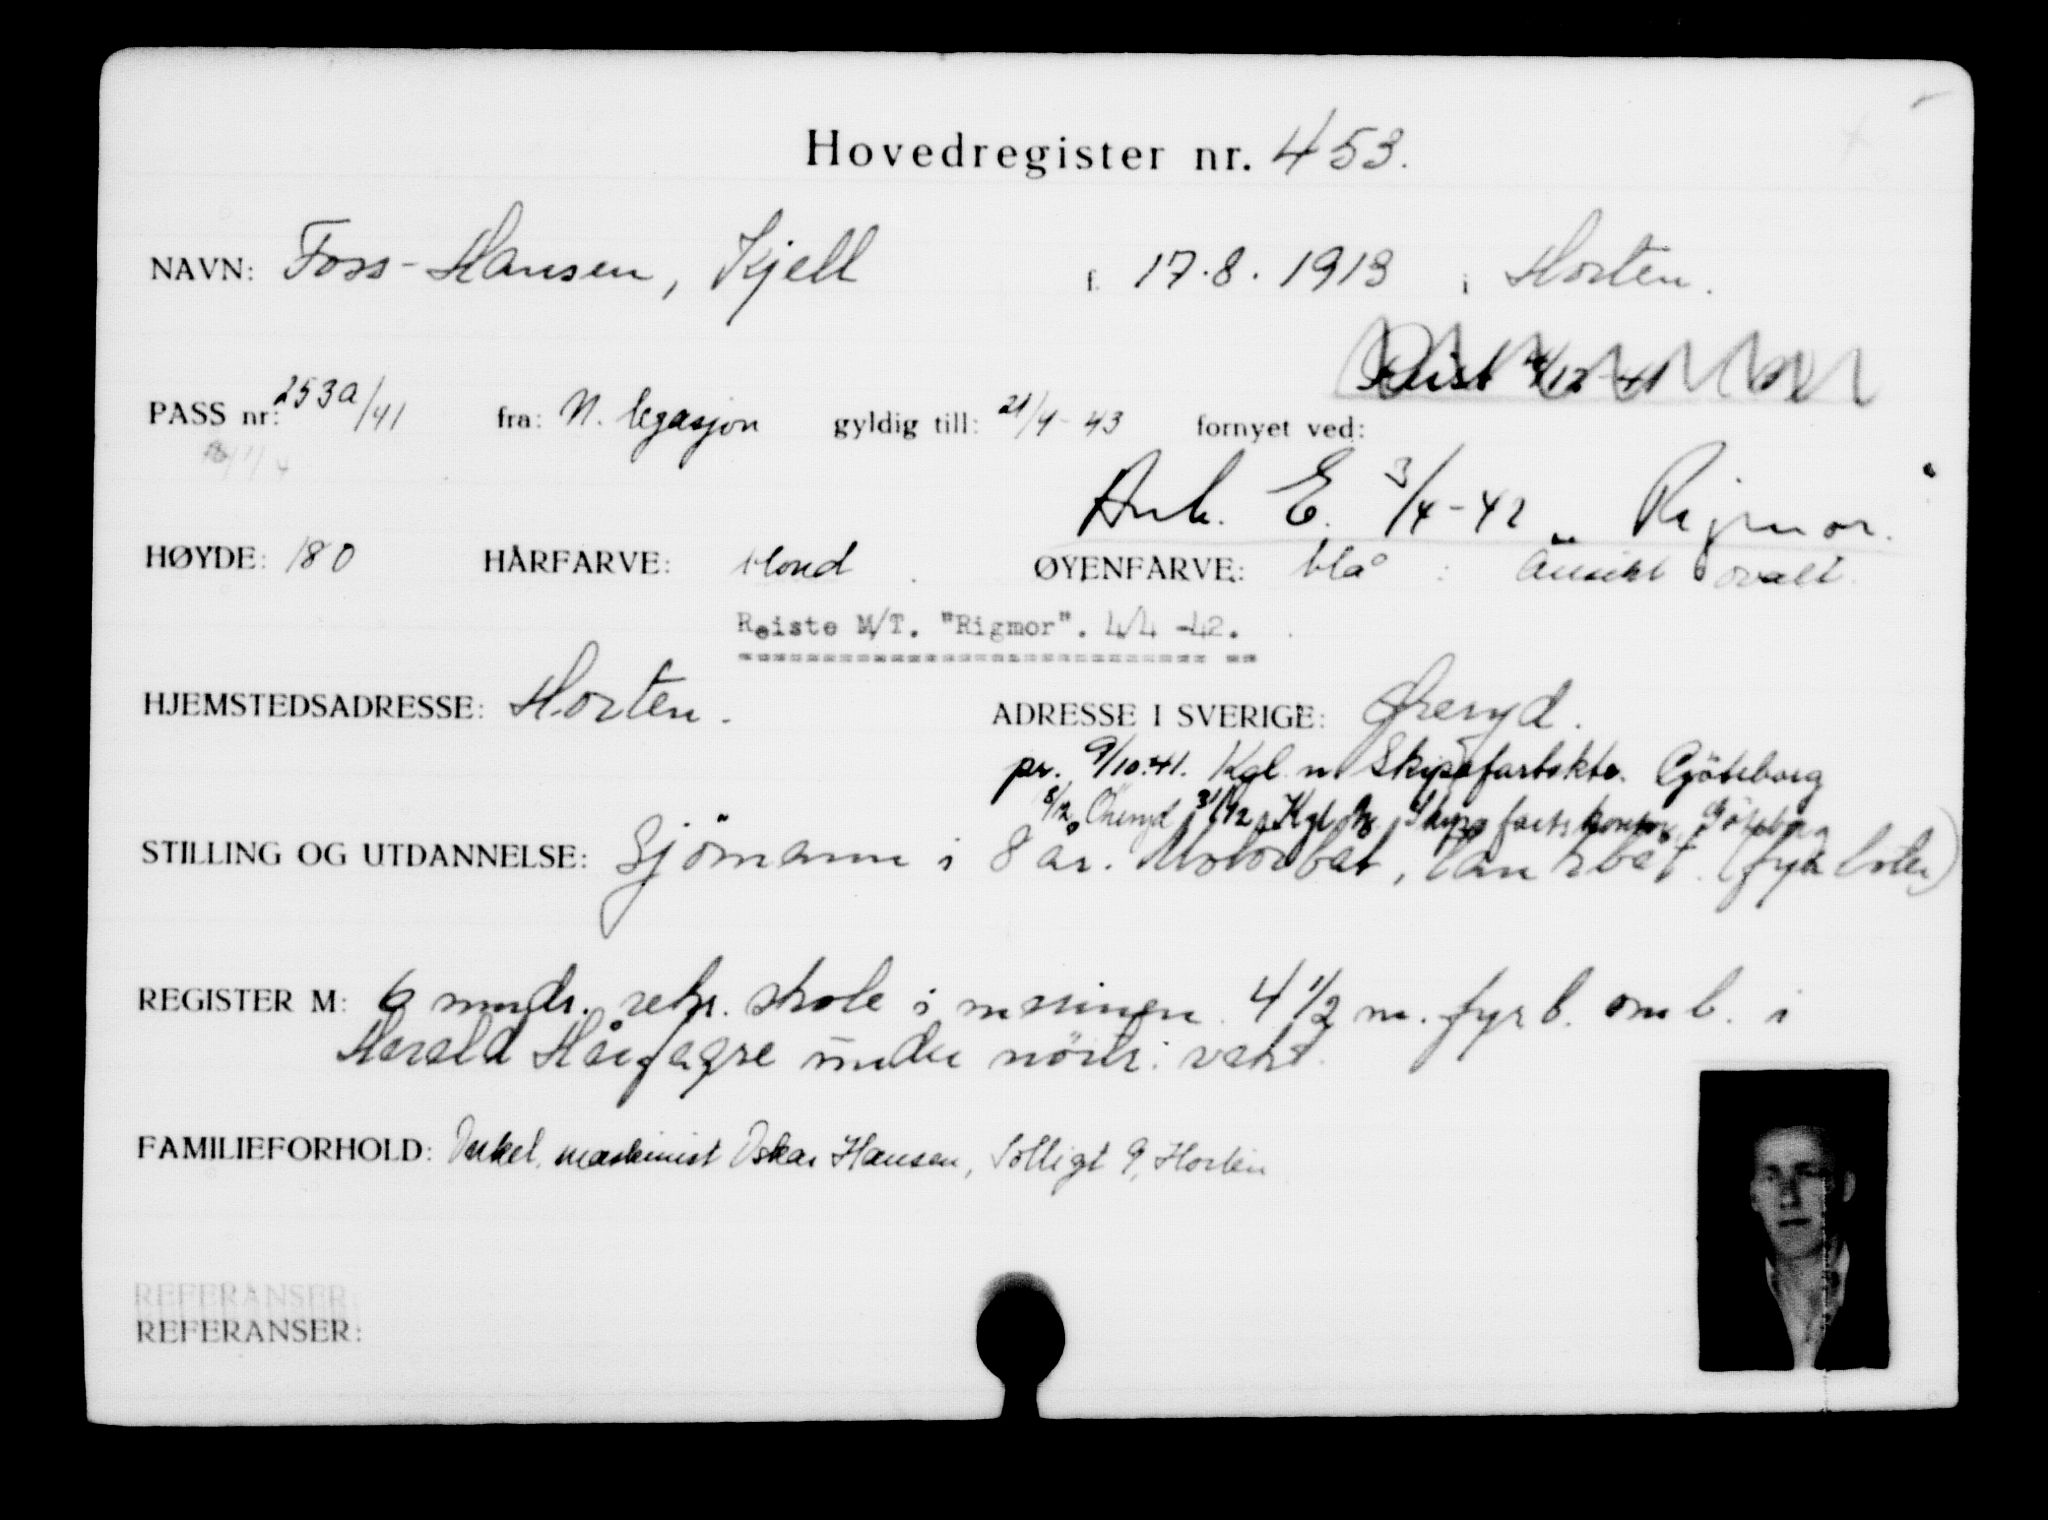 Hovedregister nr. 453.
NAVN: Foss-Hansen, Kjell f. 17.8.1913 i Horten.
Reist 12-41
PASS nr: 253a/41 fra: N. legasjon gyldig till: 21/4-43 fornyet ved:
Ank. E. 3/4-42 Rigmor.
HØYDE: 180 HÅRFARVE: blond ØYENFARVE: blå Ansikt ovalt.
Reiste M/T. "Rigmor". 4/4-42.
HJEMSTEDSADRESSE: Horten. ADRESSE I SVERIGE: Öreryd.
pr. 9/10.41. Kgl. n Skipsfartsktr. Göteborg
8/12 Öreryd 31/12 Kgl. N. Skipsfartskontor, Göteborg
STILLING OG UTDANNELSE: Sjömann i 8 år. Motorbåt, tankbåt. (fyrböter)
REGISTER M: 6 mndr. rekr. skole i marinen. 4 1/2 m. fyrb. omb. i
Harald Hårfagre under nöitr. vakt.
FAMILIEFORHOLD: Onkel, maskinist Oskar Hansen, Solligt 9, Horten
REFERANSER:
REFERANSER: